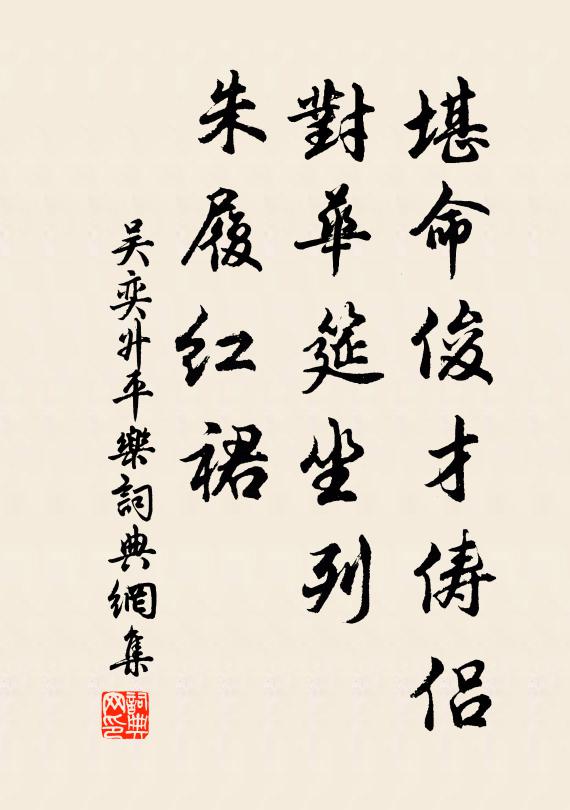 堪命俊才儔侶
對華筵坐列
朱履紅裙
吴奕升平樂詞典網集
詞典网印